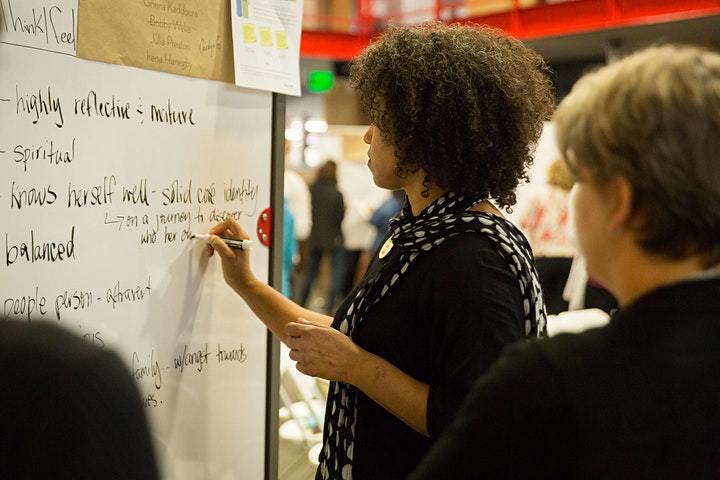 Think/feel
Ghena Kaddoura
Bobby Wolfe
Julia Preston
Irena
- highly reflective & mature
- spiritual
knows herself well - solid core identity
↳ on a journey to discover
who her o
balanced
people person - extravert
family - w/angst towards